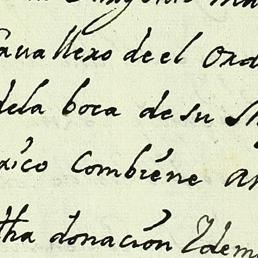 Cauallero de el Ord
dela boca de su
xico combiene
tha donación Ydem